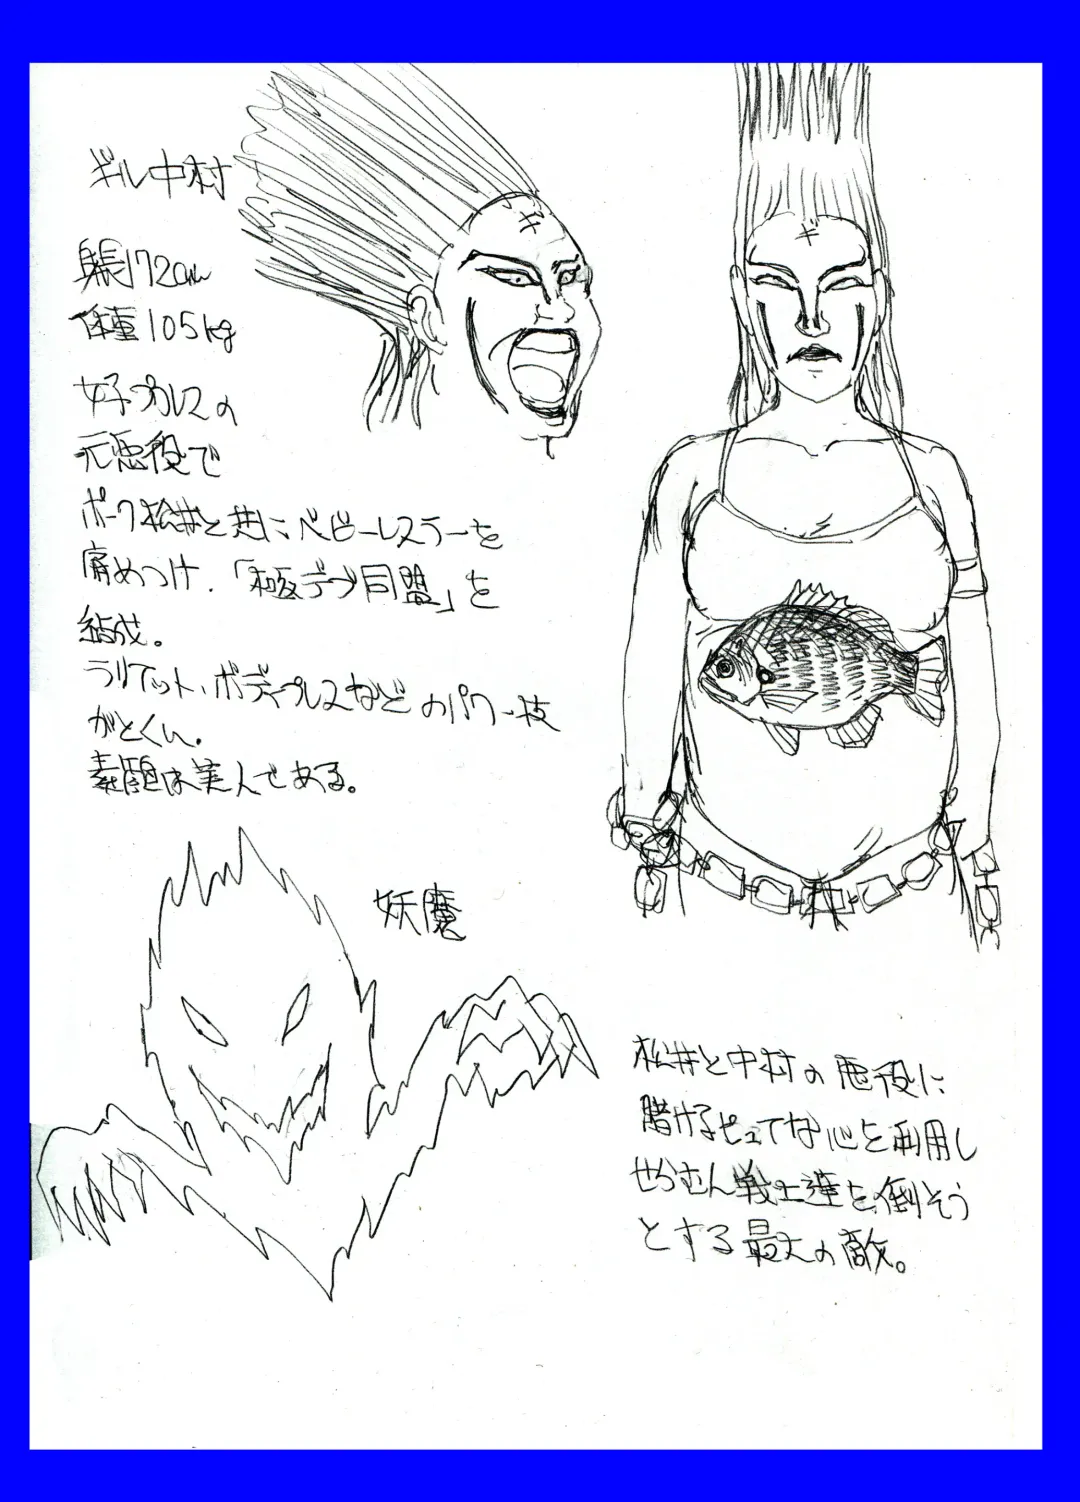 ギル中村
ギ
ギ
身長172cm
体重105kg
女子プロレスの
元悪役で
ポーク松井と共にベビーレスラーを
痛めつけ、「極デブ同盟」を
結成。
ラリアット、ボディープレスなどのパワー技
がとくい。
素顔は美人である。
妖魔
松井と中村の悪役に
賭けるピュアな心を利用し
せらむん戦士達を倒そう
とする最大の敵。